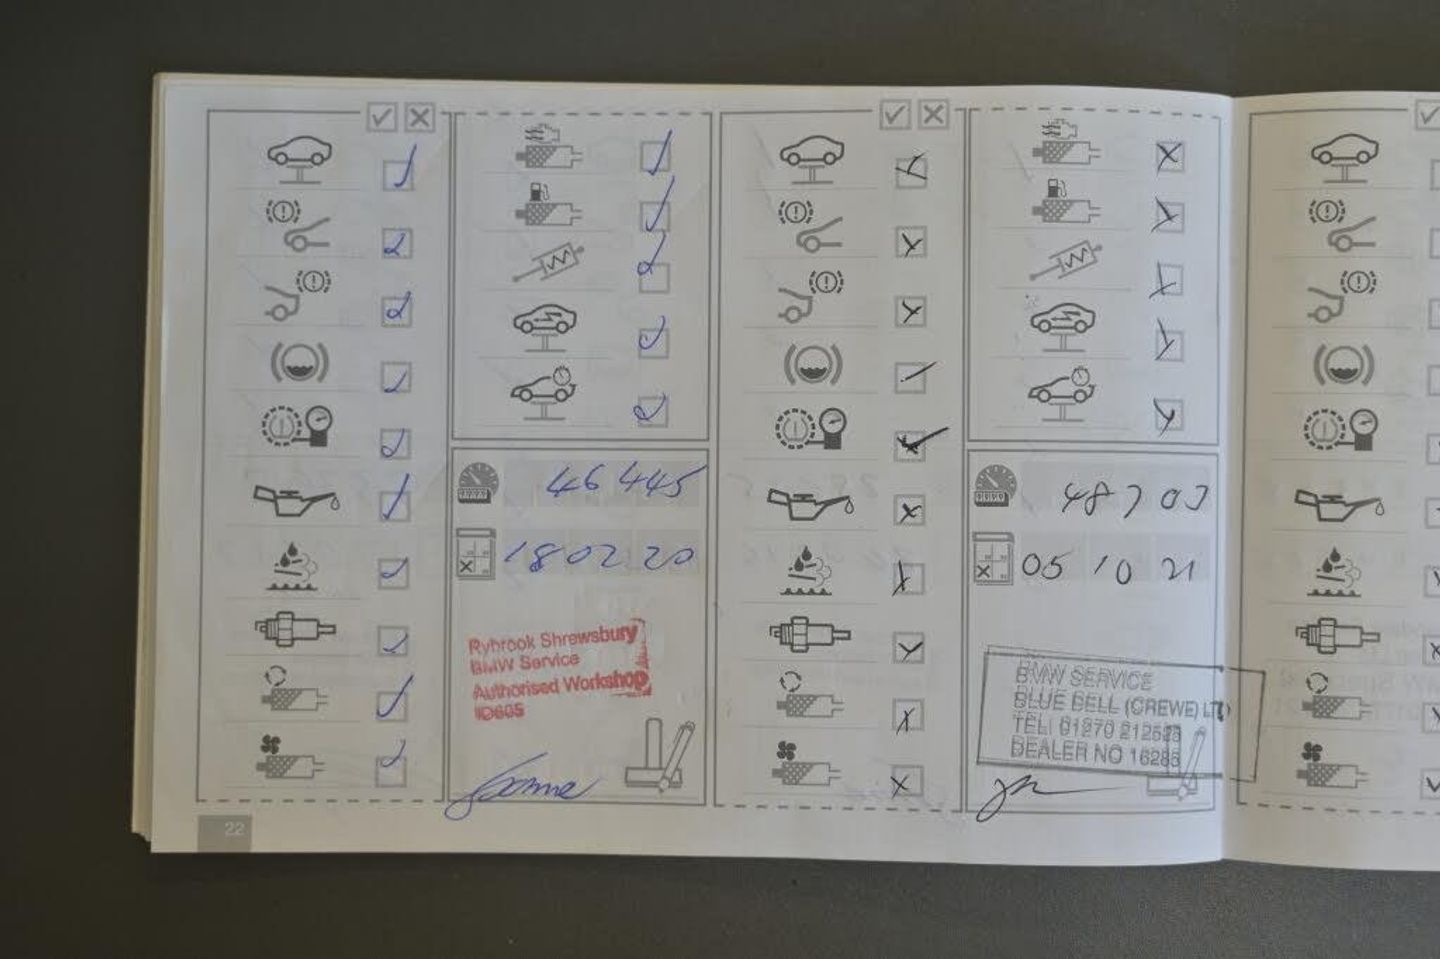 46 445
18 02 20
Rybrook Shrewsbury
BMW Service
Authorised Workshop
48703
05 10 21
BMW SERVICE
BLUE BELL (CREWE) LTD
TEL: 01270 212526
DEALER NO 16286
22